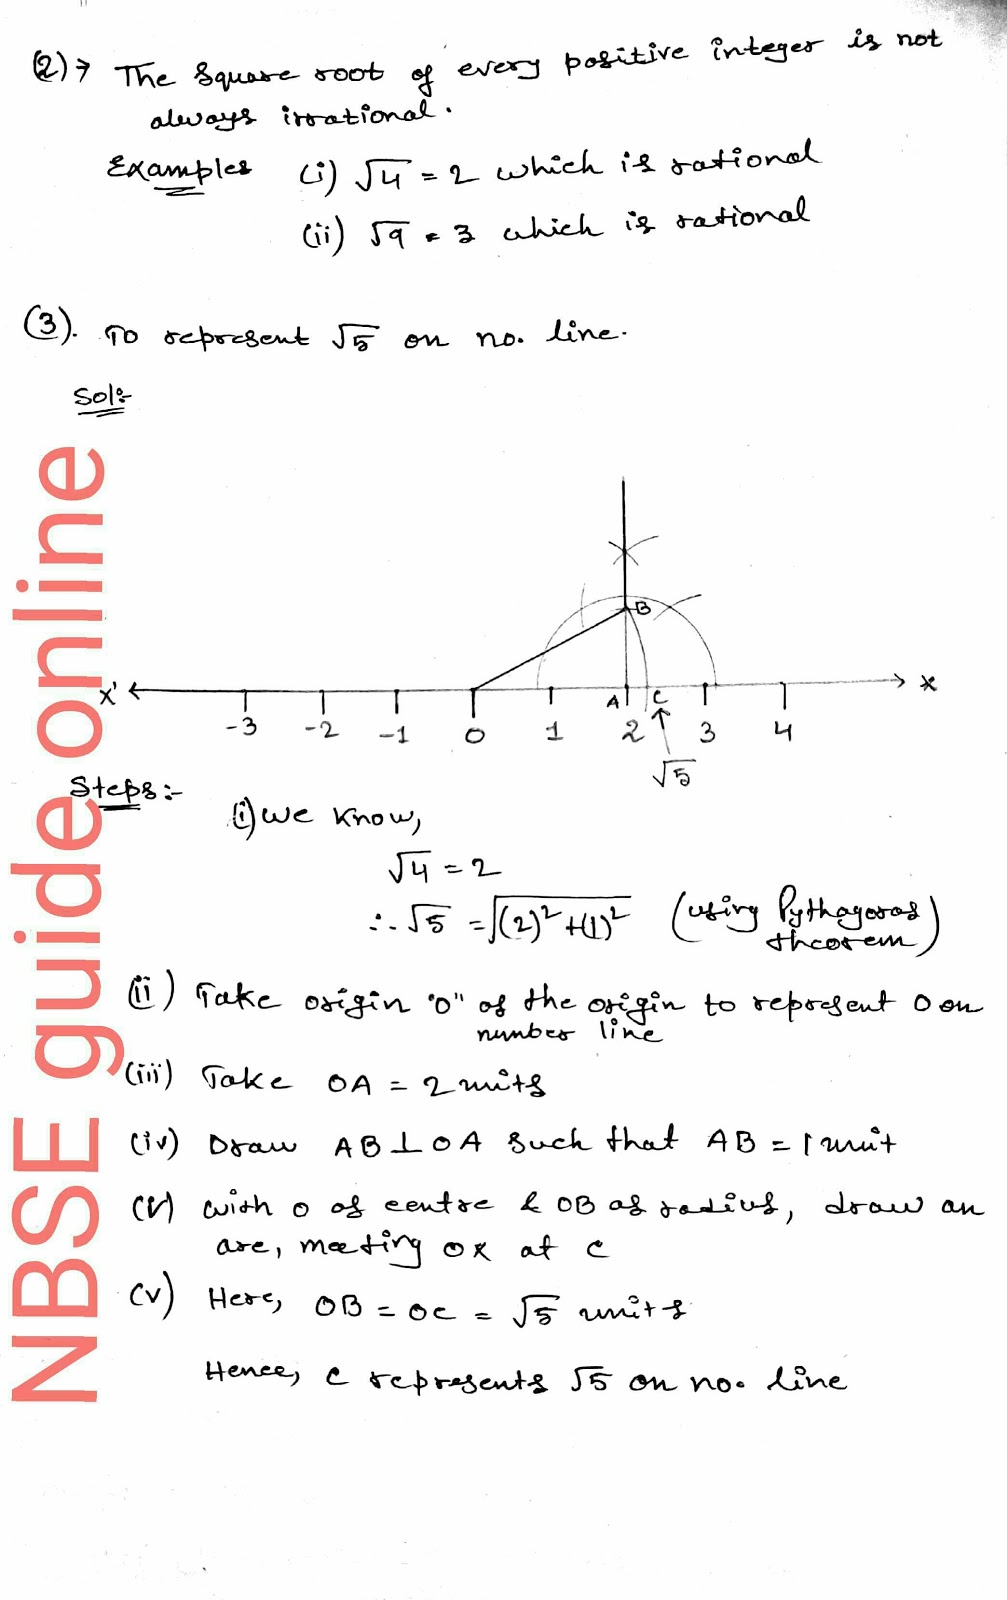 (2)→ The Square root of every positive integer is not
always irrational.
Examples (i) √4 = 2 which is rational
(ii) √9 = 3 which is rational
(3). To represent √5 on no. line.
Sol:-
B
X' A C X
-3 -2 -1 0 1 2 3 4
√5
Steps:-
(i) We know,
√4 = 2
∴ √5 = √(2)²+(1)² (using Pythagoras
theorem)
(ii) Take origin "O" as the origin to represent 0 on
number line
(iii) Take OA = 2 units
(iv) Draw AB ⊥ OA such that AB = 1 unit
(v) with O as centre & OB as radius, draw an
arc, meeting OX at C
(v) Here, OB = OC = √5 units
Hence, C represents √5 on no. line
NBSE guide online